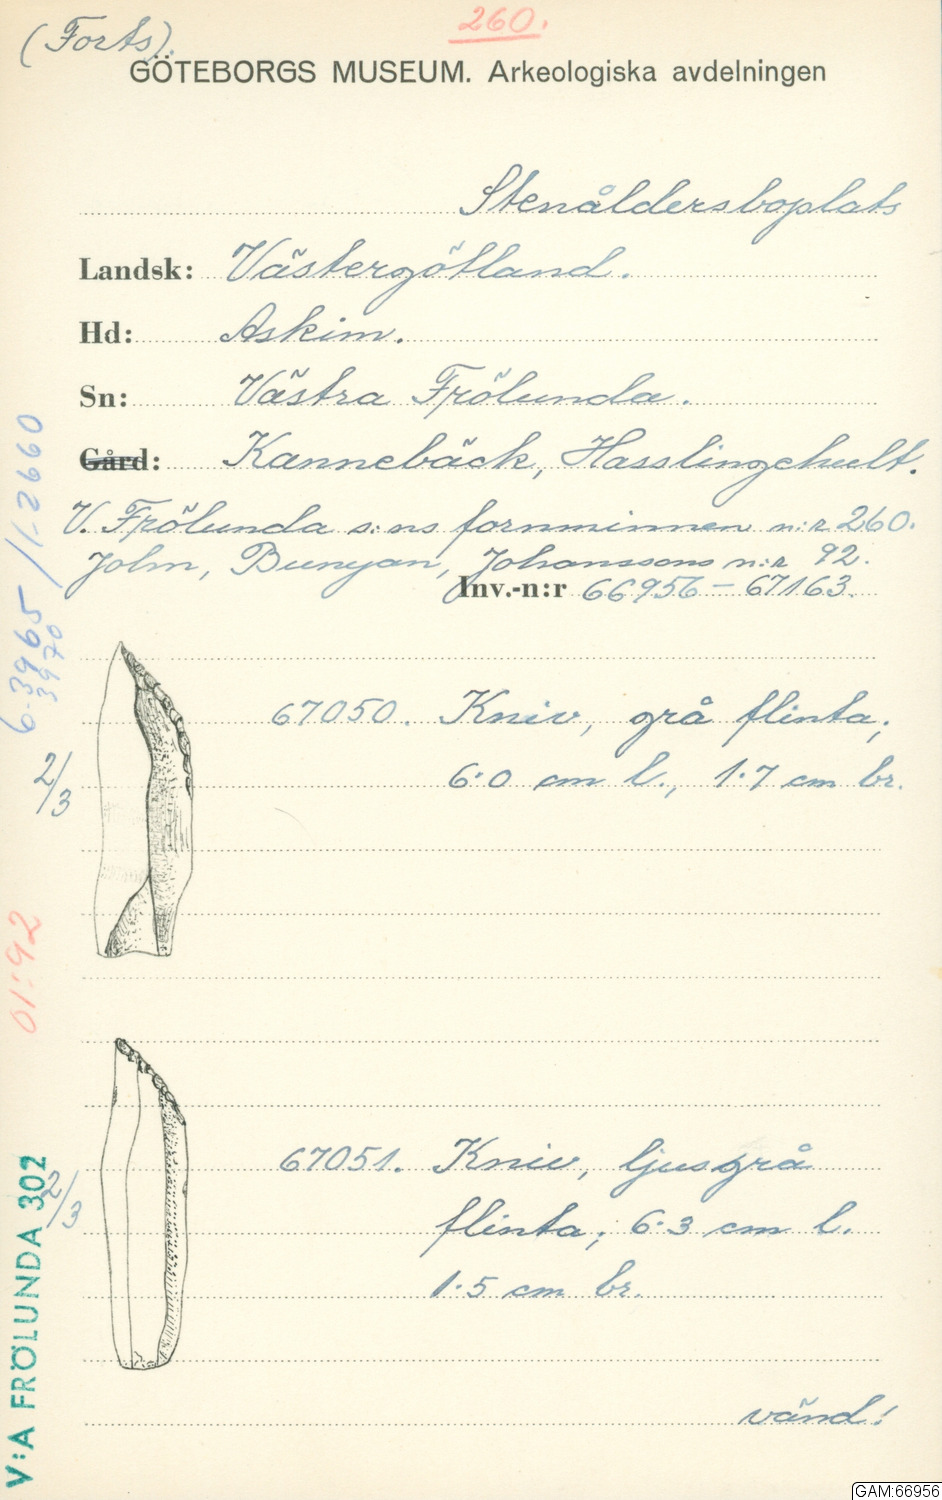 260.
(Forts).
GÖTEBORGS MUSEUM. Arkeologiska avdelningen
Stenåldersboplats
Landsk: Västergötland.
Hd: Askim.
Sn: Västra Frölunda.
Gård: Kannebäck, Hasslingehult.
V. Frölunda s:ns fornminnen n:r 260.
John, Bunyan, Johanssons n:r 92.
Inv.-n:r 66956 – 67163.
67050. Kniv, grå flinta,
6·0 cm l., 1·7 cm br.
2/3
67051. Kniv, ljusgrå
flinta, 6·3 cm l.
1·5 cm br.
2/3
vänd!
6-3965 /1-2660
3970
01:92
V:A FRÖLUNDA 302
GAM:66956